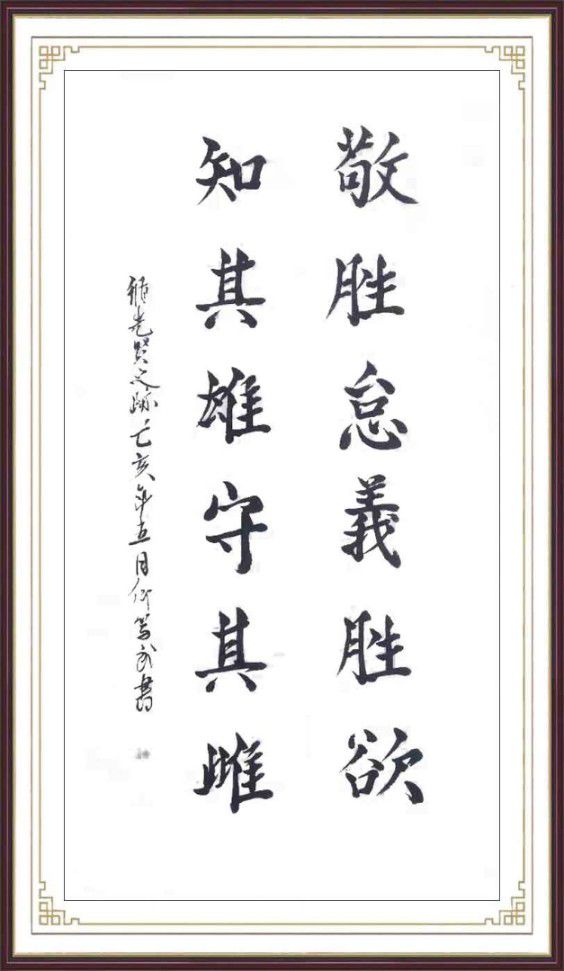 敬胜怠義胜欲
知其雄守其雌
先贤之跡己亥年五月何笃武書